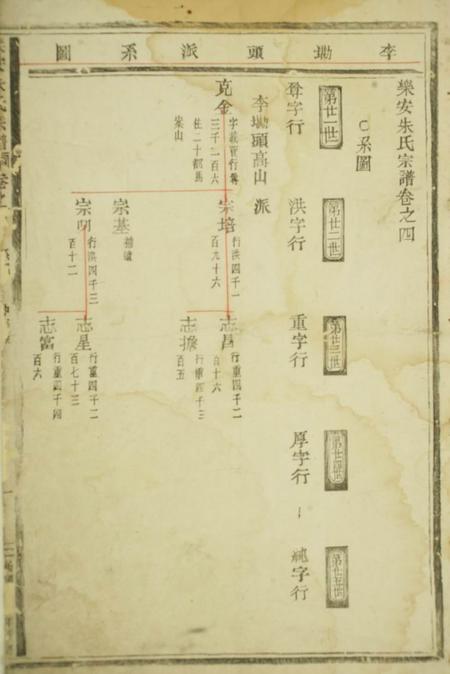 李坳頭派系圖
樂安朱氏宗譜卷之四
系圖
第廿一世
第廿二世
第廿三世
第廿四世
第廿五世
尊字行
洪字行
重字行
厚字行
純字行
李坳頭高山派
克金
宗培
行洪四千一
百九十六
宗基
宗明
行洪四千三
百十二
志昌
行重四千二
百十六
志擔
行重四千三
百五
志星
行重四千二
百七十三
志富
行重四千四
百六